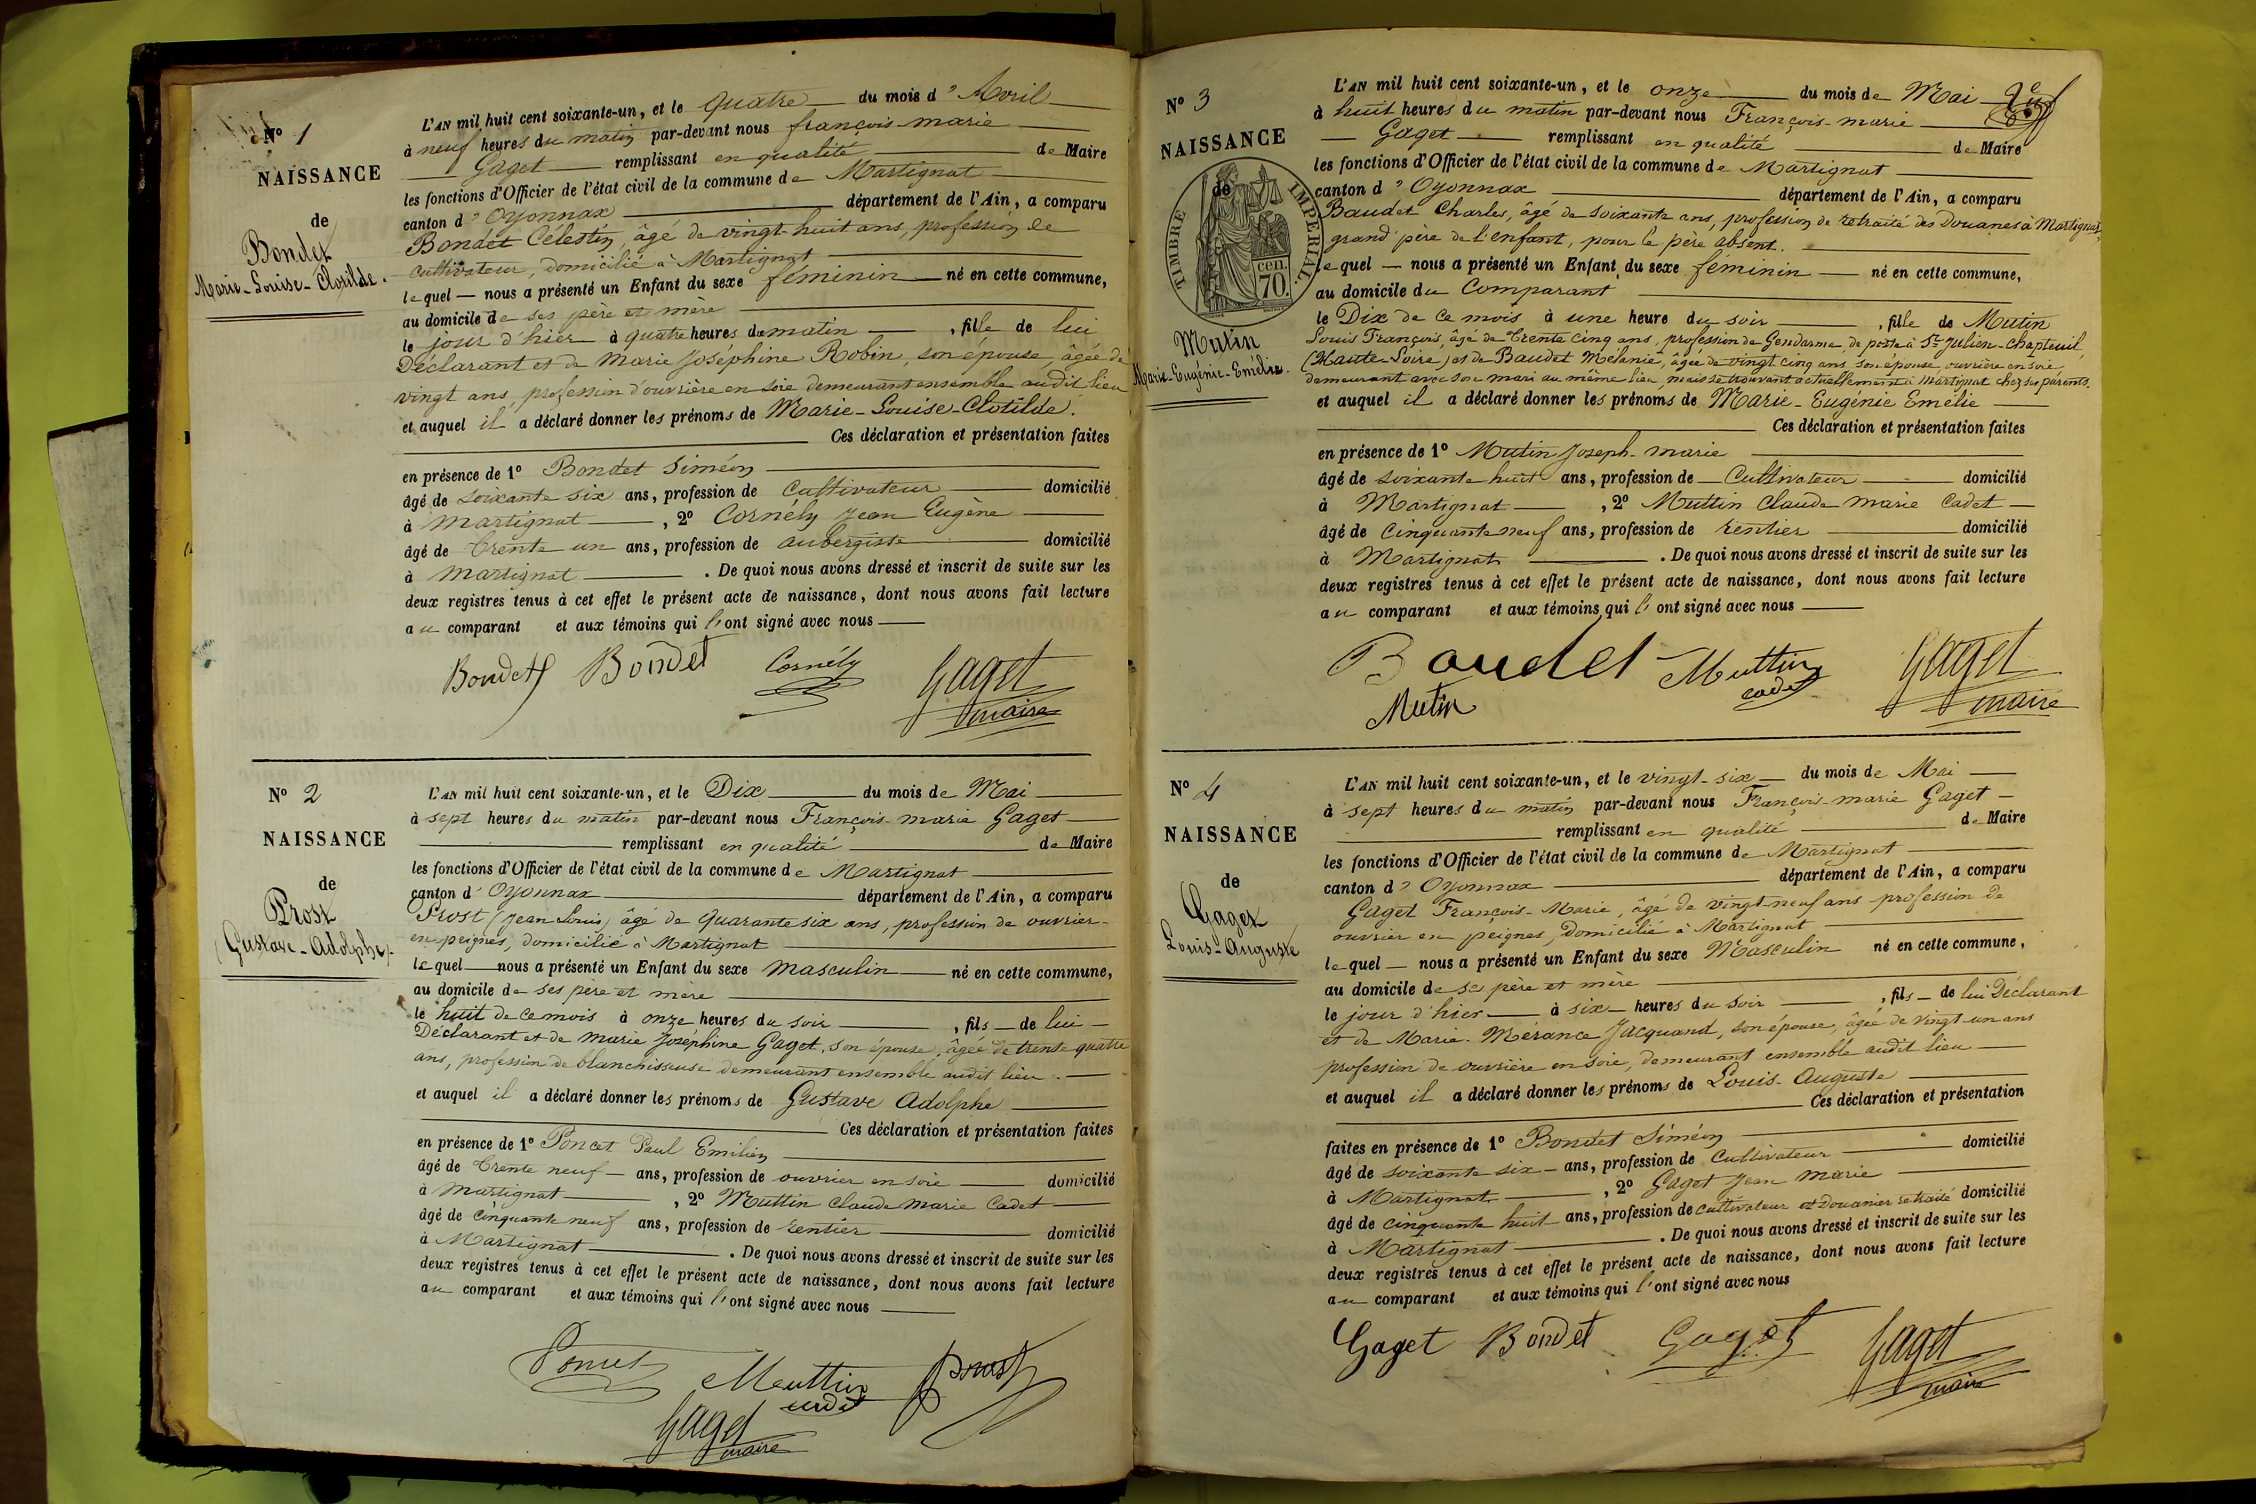 N° 1
NAISSANCE
de
Bondet
Marie-Louise-Clotilde.
L'AN mil huit cent soixante-un, et le quatre du mois d'Avril
à neuf heures du matin par-devant nous françois-marie
Gaget remplissant en qualité de Maire
les fonctions d'Officier de l'état civil de la commune de Martignat
canton d'Oyonnax département de l'Ain, a comparu
Bondet Célestin, âgé de vingt-huit ans, profession de
cultivateur, domicilié à Martignat
lequel nous a présenté un Enfant du sexe féminin né en cette commune,
au domicile de ses père et mère
le jour d'hier à quatre heures du matin, fille de lui
Déclarant et de Marie Joséphine Robin, son épouse, âgée de
vingt ans, profession d'ouvrière en soie demeurant ensemble audit lieu
et auquel il a déclaré donner les prénoms de Marie-Louise-Clotilde.
Ces déclaration et présentation faites
en présence de 1° Bondet Siméon
âgé de soixante six ans, profession de cultivateur domicilié
à Martignat, 2° Cornély Jean Eugène
âgé de trente un ans, profession de aubergiste domicilié
à Martignat. De quoi nous avons dressé et inscrit de suite sur les
deux registres tenus à cet effet le présent acte de naissance, dont nous avons fait lecture
au comparant et aux témoins qui l'ont signé avec nous
Bondet Bondet Cornély Gaget
maire
N° 2
NAISSANCE
de
Prost
(Gustave-Adolphe).
L'AN mil huit cent soixante-un, et le Dix du mois de Mai
à sept heures du matin par-devant nous François-marie Gaget
remplissant en qualité de Maire
les fonctions d'Officier de l'état civil de la commune de Martignat
canton d'Oyonnax département de l'Ain, a comparu
Prost (Jean Louis) âgé de quarante six ans, profession de ouvrier
en peignes, domicilié à Martignat
lequel nous a présenté un Enfant du sexe masculin né en cette commune,
au domicile de ses père et mère
le huit de ce mois à onze heures du soir, fils de lui
Déclarant et de marie Joséphine Gaget, son épouse, âgée de trente quatre
ans, profession de blanchisseuse demeurant ensemble audit lieu.
et auquel il a déclaré donner les prénoms de Gustave Adolphe
Ces déclaration et présentation faites
en présence de 1° Poncet Paul Emilien
âgé de trente neuf ans, profession de ouvrier en soie domicilié
à Martignat, 2° Muttin claude marie Cadet
âgé de cinquante neuf ans, profession de rentier domicilié
à Martignat. De quoi nous avons dressé et inscrit de suite sur les
deux registres tenus à cet effet le présent acte de naissance, dont nous avons fait lecture
au comparant et aux témoins qui l'ont signé avec nous
Poncet Muttin Prost
cadet
Gaget
maire
N° 3
NAISSANCE
de
TIMBRE IMPÉRIAL.
70 cen.
Mutin
Marie-Eugénie-Emélie.
L'AN mil huit cent soixante-un, et le onze du mois de Mai
à huit heures du matin par-devant nous François-marie
Gaget remplissant en qualité de Maire
les fonctions d'Officier de l'état civil de la commune de Martignat
canton d'Oyonnax département de l'Ain, a comparu
Baudet Charles, âgé de soixante ans, profession de retraité des Douanes à Martignat,
grand père de l'enfant, pour le père absent.
lequel nous a présenté un Enfant du sexe féminin né en cette commune,
au domicile du Comparant
le Dix de ce mois à une heure du soir, fille de Mutin
Louis François, âgé de trente cinq ans, profession de Gendarme, de poste à St Julien-Chapteuil,
(Haute-Loire) et de Baudet Mélanie, âgée de vingt cinq ans, son épouse, ouvrière en soie
demeurant avec son mari au même lieu, mais se trouvant actuellement à Martignat chez ses parents.
et auquel il a déclaré donner les prénoms de Marie-Eugénie Emélie
Ces déclaration et présentation faites
en présence de 1° Mutin Joseph-marie
âgé de soixante huit ans, profession de Cultivateur domicilié
à Martignat, 2° Muttin Claude marie Cadet
âgé de cinquante neuf ans, profession de rentier domicilié
à Martignat. De quoi nous avons dressé et inscrit de suite sur les
deux registres tenus à cet effet le présent acte de naissance, dont nous avons fait lecture
au comparant et aux témoins qui l'ont signé avec nous
Baudet Muttin Gaget
cadet maire
Mutin
N° 4
NAISSANCE
de
Gaget
Louis-Auguste
L'AN mil huit cent soixante-un, et le vingt-six du mois de Mai
à sept heures du matin par-devant nous François-marie Gaget
remplissant en qualité de Maire
les fonctions d'Officier de l'état civil de la commune de Martignat
canton d'Oyonnax département de l'Ain, a comparu
Gaget François-Marie, âgé de vingt-neuf ans profession de
ouvrier en peignes, domicilié à Martignat
lequel nous a présenté un Enfant du sexe Masculin né en cette commune,
au domicile de ses père et mère
le jour d'hier à six heures du soir, fils de lui Déclarant
et de Marie-Mérance Jacquand, son épouse, âgée de vingt-un ans
profession de ouvrière en soie, demeurant ensemble audit lieu
et auquel il a déclaré donner les prénoms de Louis-Auguste
Ces déclaration et présentation
faites en présence de 1° Bondet Siméon
âgé de soixante six ans, profession de Cultivateur domicilié
à Martignat, 2° Gaget Jean marie
âgé de cinquante huit ans, profession de cultivateur et Douanier retraité domicilié
à Martignat. De quoi nous avons dressé et inscrit de suite sur les
deux registres tenus à cet effet le présent acte de naissance, dont nous avons fait lecture
au comparant et aux témoins qui l'ont signé avec nous
Gaget Bondet Gaget Gaget
maire